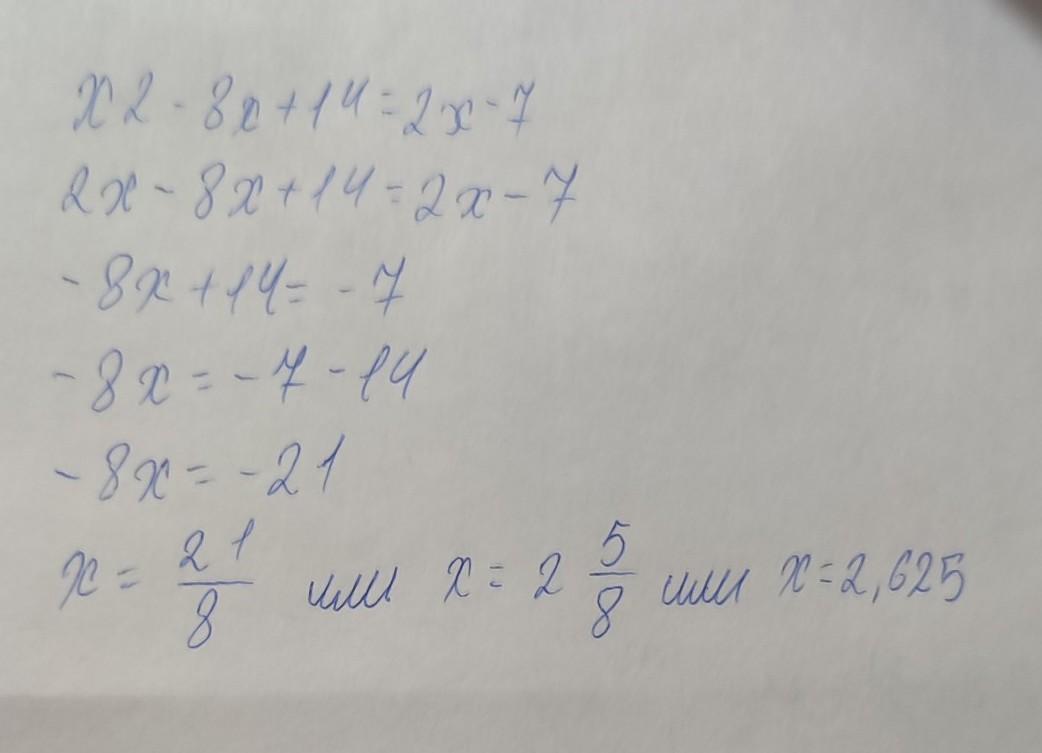 x2 - 8x + 14 = 2x - 7
2x - 8x + 14 = 2x - 7
- 8x + 14 = - 7
- 8x = - 7 - 14
- 8x = - 21
x = 21/8 или x = 2 5/8 или x = 2,625